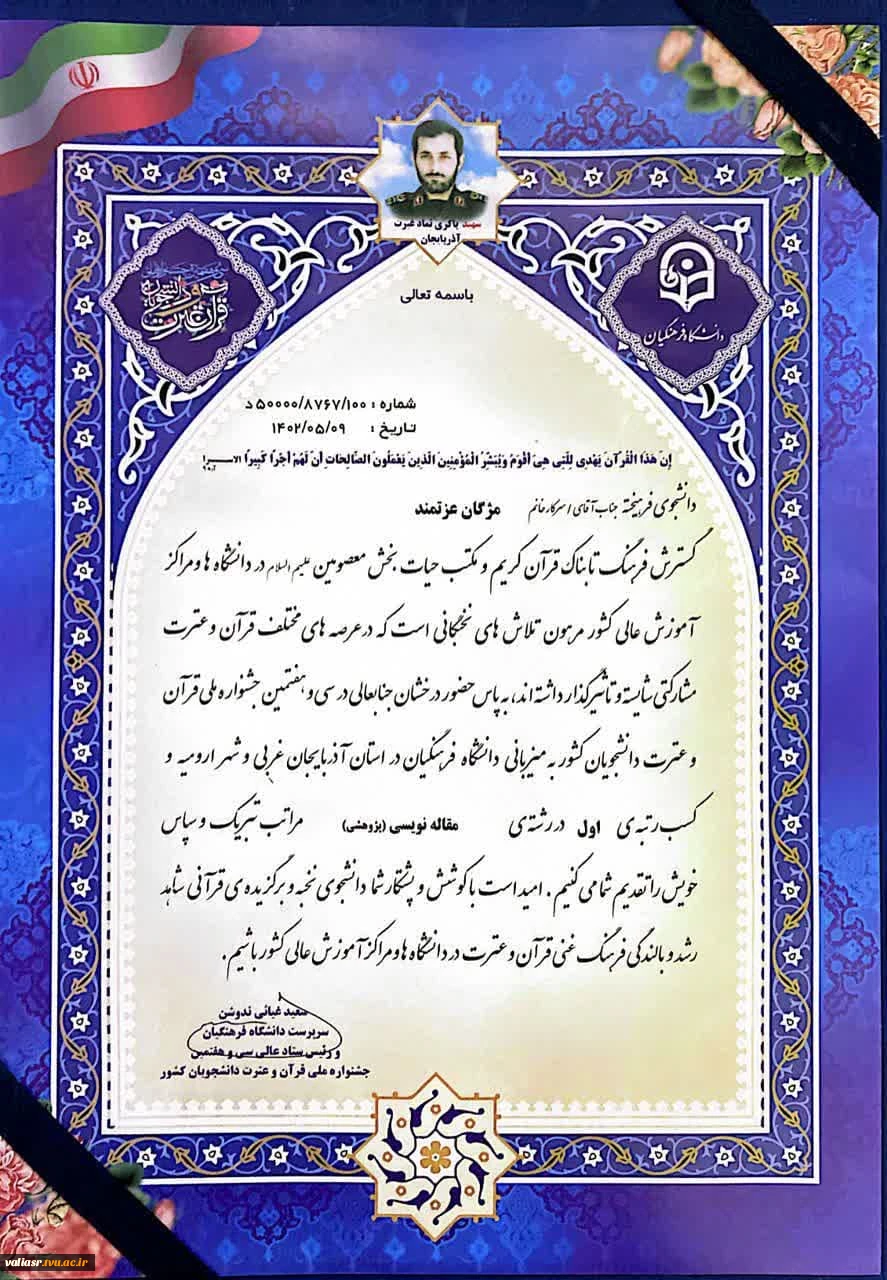 شهید باکری نماد غیرت
آذربایجان
قرآن و عترت
دانشگاه فرهنگیان
باسمه تعالی
شماره : ۵۰۰۰۰/۸۷۶۷/۱۰۰ د
تاریخ : ۱۴۰۲/۰۵/۰۹
إِنَّ هَذَا الْقُرْآنَ يَهْدِي لِلَّتِي هِيَ أَقْوَمُ وَيُبَشِّرُ الْمُؤْمِنِينَ الَّذِينَ يَعْمَلُونَ الصَّالِحَاتِ أَنَّ لَهُمْ أَجْرًا كَبِيرًا الاسراء
دانشجوی فرهیخته جناب آقای / سرکار خانم مژگان عزتمند
گسترش فرهنگ تابناک قرآن کریم و مکتب حیات بخش معصومین علیهم السلام در دانشگاه ها و مراکز
آموزش عالی کشور مرهون تلاش های نخبگانی است که در عرصه های مختلف قرآن و عترت
مشارکتی شایسته و تأثیرگذار داشته اند، به پاس حضور درخشان جنابعالی در سی و هفتمین جشنواره ملی قرآن
و عترت دانشجویان کشور به میزبانی دانشگاه فرهنگیان در استان آذربایجان غربی و شهر ارومیه و
کسب رتبه ی اول در رشته ی مقاله نویسی (پژوهشی) مراتب تبریک و سپاس
خویش را تقدیم شما می کنیم . امید است با کوشش و پشتکار شما دانشجوی نخبه و برگزیده ی قرآنی شاهد
رشد و بالندگی فرهنگ غنی قرآن و عترت در دانشگاه ها و مراکز آموزش عالی کشور باشیم .
سعید غیاثی ندوشن
سرپرست دانشگاه فرهنگیان
و رئیس ستاد عالی سی و هفتمین
جشنواره ملی قرآن و عترت دانشجویان کشور
valiasr.tvu.ac.ir